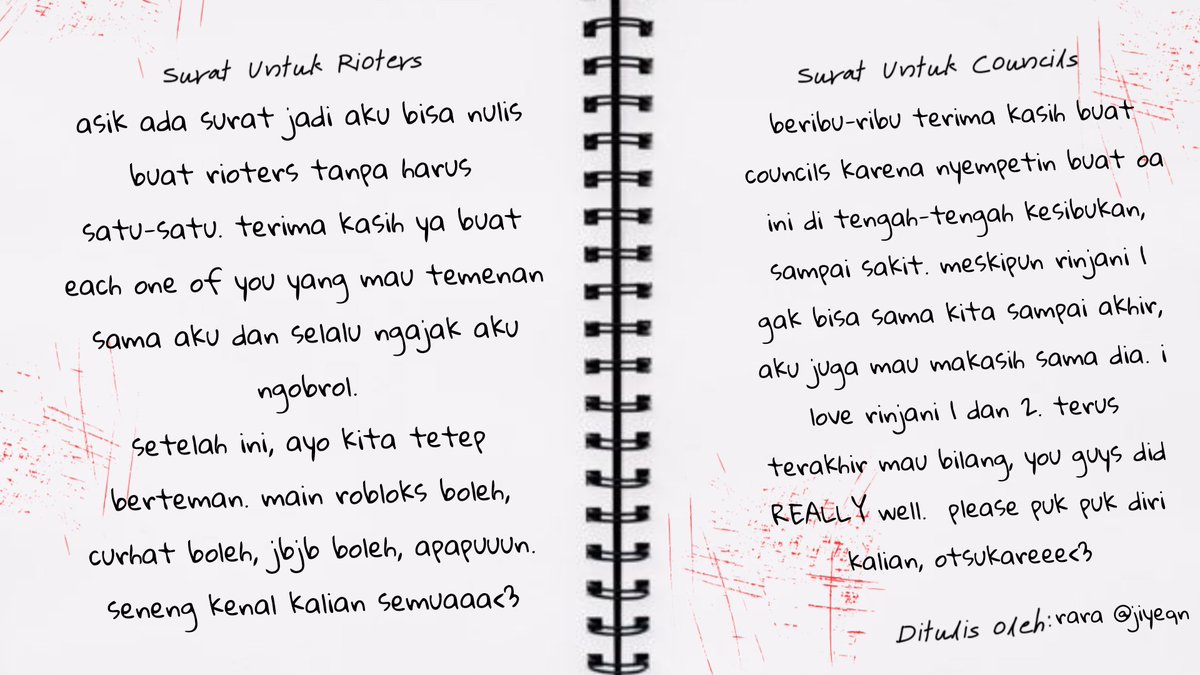 Surat Untuk Rioters
asik ada surat jadi aku bisa nulis
buat rioters tanpa harus
satu-satu. terima kasih ya buat
each one of you yang mau temenan
sama aku dan selalu ngajak aku
ngobrol.
setelah ini, ayo kita tetep
berteman. main robloks boleh,
curhat boleh, jbjb boleh, apapuuun.
seneng kenal kalian semuaaa<3
Surat Untuk Councils
beribu-ribu terima kasih buat
councils karena nyempetin buat oa
ini di tengah-tengah kesibukan,
sampai sakit. meskipun rinjani 1
gak bisa sama kita sampai akhir,
aku juga mau makasih sama dia. i
love rinjani 1 dan 2. terus
terakhir mau bilang, you guys did
REALLY well. please puk puk diri
kalian, otsukareee<3
Ditulis Oleh: rara @jiyeqn